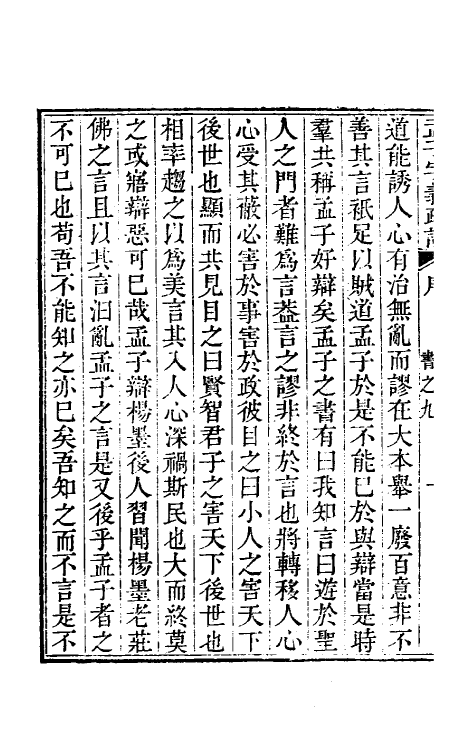 道能誘人心有治無亂而謬在大本舉一廢百意非不
善其言祇足以賊道孟子於是不能已於與辯當是時
羣共稱孟子好辯矣孟子之書有曰我知言曰遊於聖
人之門者難爲言葢言之謬非終於言也將轉移人心
心受其蔽必害於事害於政彼目之曰小人之害天下
後世也顯而共見目之曰賢智君子之害天下後世也
相率趨之以爲美言其入人心深禍斯民也大而終莫
之或寤辯惡可已哉孟子辯楊墨後人習聞楊墨老莊
佛之言且以其言汩亂孟子之言是又後乎孟子者之
不可已也苟吾不能知之亦已矣吾知之而不言是不